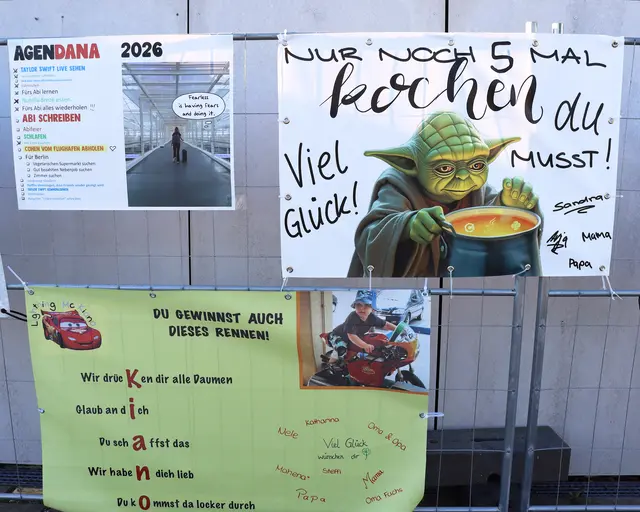 AGENDANA 2026
TAYLOR SWIFT LIVE SEHEN
Fürs Abi lernen
Fürs Abi alles wiederholen
ABI SCHREIBEN
Abifeier
SCHLAFEN
COHEN VOM FLUGHAFEN ABHOLEN
Für Berlin
Vegetarischen Supermarkt suchen
Gut bezahlten Nebenjob suchen
Zimmer suchen
Fearless
is having fears
and doing it.
NUR NOCH 5 MAL
kochen du
MUSST!
Viel
Glück!
Sandra
Mama
Papa
DU GEWINNST AUCH
DIESES RENNEN!
Wir drücKen dir alle Daumen
Glaub an dich
Du schaffst das
Wir haben dich lieb
Du kommst da locker durch
Katharina
Nele
Oma & Opa
Viel Glück
wünschen dir
Steffi
Mama
Papa
Oma Fuchs